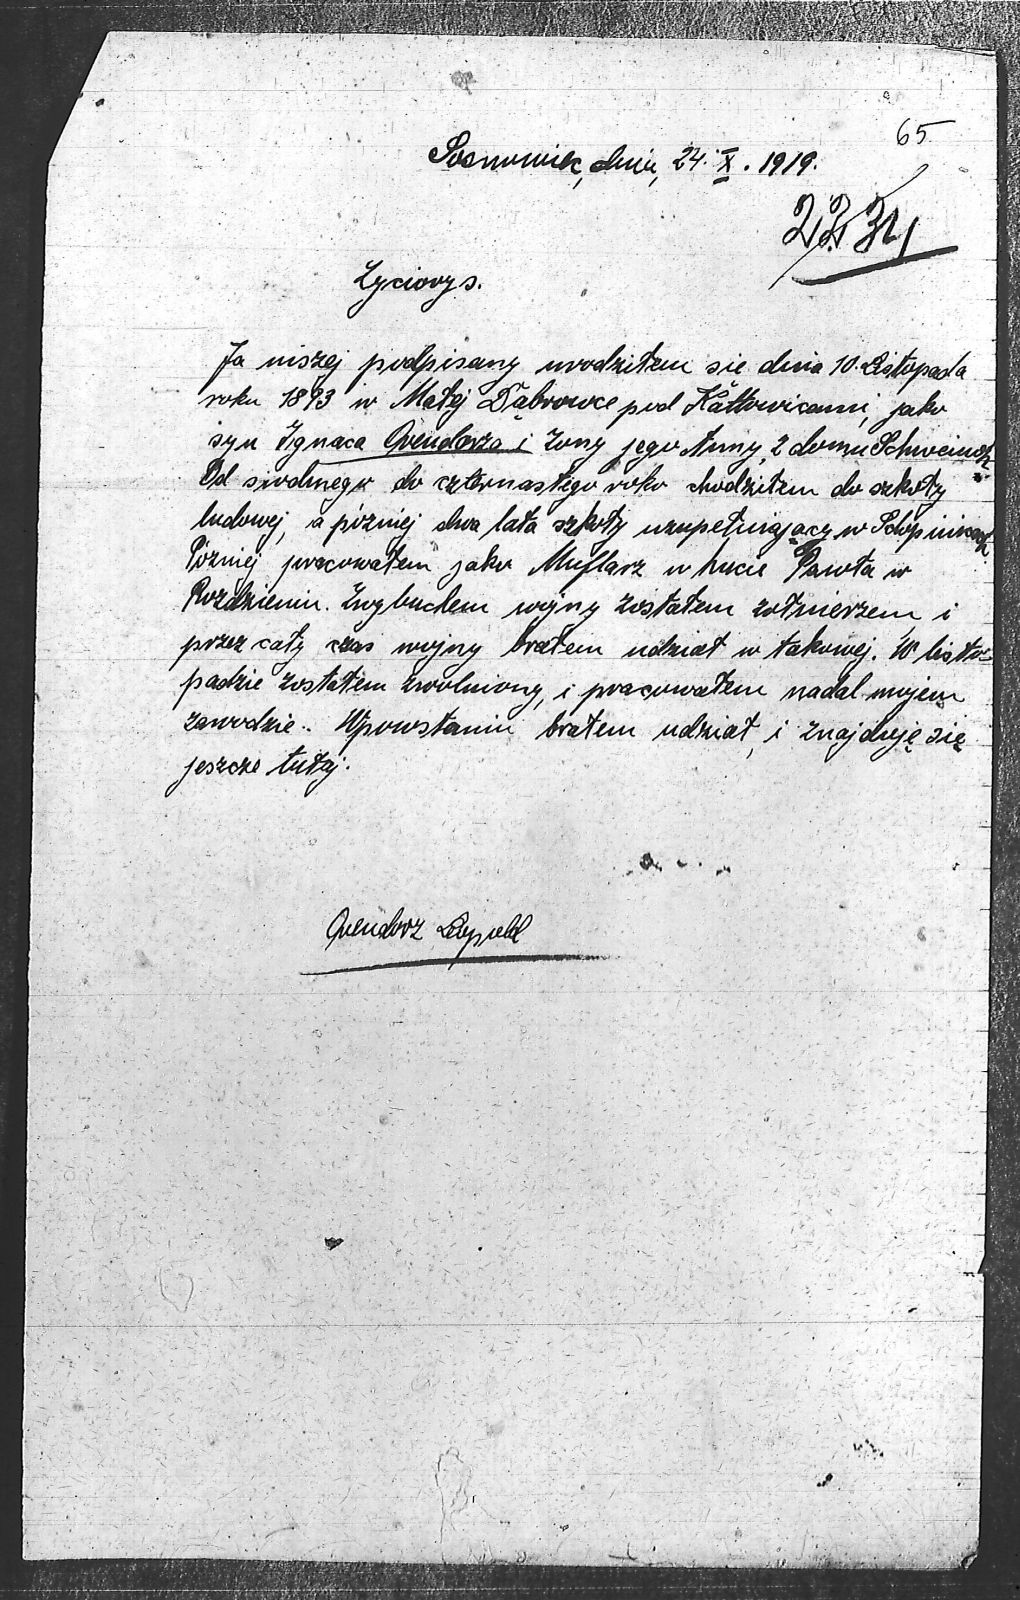 65
Sosnowiec, dnia, 24. X. 1919.
Życiorys.
Ja niszej podpisany urodziłem sie dnia 10. Listopada
roku 1893 w Małej Dąbrowce pod Kattowicami, jako
syn Ignaca Quendorza i żony jego Anny, z domu
Od siodmego do czternastego roko chodziłem do szkoły
ludowej, a później dwa lata szkoły uzupełniający w Schopinicach.
Później pracowałem jako Muflarz w hucie Pawła w
Rozdzieniu. Zwybuchem wojny zostałem zołnierzem i
przez cały czas wojny brałem udział w takowej. W listo=
padzie zostałem zwolniony, i pracowałem nadal mojem
zawodzie. Wpowstaniu brałem udział, i znajduję się
jeszcze tutaj.
Quendorz Leopold